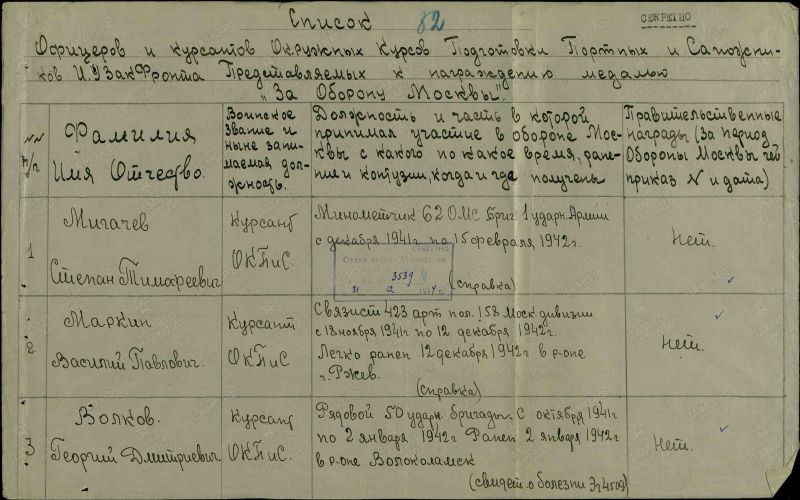 Список 82
СЕКРЕТНО
Офицеров и курсантов Окружных Курсов Подготовки Портных и Сапожни-
ков И.У ЗакФронта Представляемых к награждению медалью
"За Оборону Москвы".
NN п/п
Фамилия
Имя Отчество.
Воинское
звание и
ныне зани-
маемая дол-
жность.
Должность и часть в которой
принимал участие в обороне Мос-
квы с какого по какое время, ране-
ния и контузии, когда и где получены
Правительственные
награды (за период
Обороны Москвы чей
приказ N и дата)
1
Мигачев
Степан Тимофеевич
Курсант
ОКПиС.
Минометчик 62 ОМС Бриг. 1 ударн. Армии
с декабря 1941г по 15 февраля 1942г.
(справка)
Нет.
СЕКРЕТНО
3539
31 12
2
Маркин
Василий Павлович.
Курсант
ОКПиС
Связист 423 арт пол. 158 Моск. дивизии
с 18 ноября 1941г по 12 декабря 1942г.
Легко ранен 12 декабря 1942г в р-оне
г. Ржев.
(справка)
Нет.
3
Волков.
Георгий Дмитриевич.
Курсант
ОКПиС.
Рядовой 50 ударн. бригады. С октября 1941г
по 2 января 1942г Ранен 2 января 1942г
в р-оне Волоколамск
(свидет о болезни 4509)
Нет.